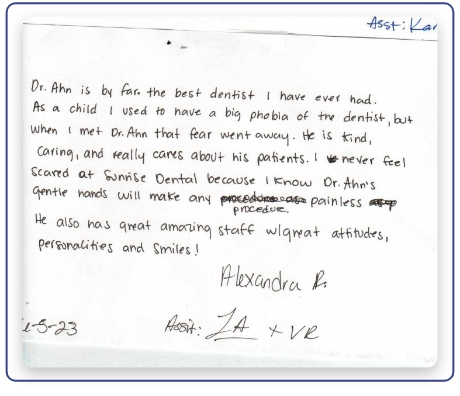 Asst: Kar
Dr. Ahn is by far the best dentist I have ever had.
As a child I used to have a big phobia of the dentist, but
when I met Dr. Ahn that fear went away. He is kind,
caring, and really cares about his patients. I never feel
scared at Sunrise Dental because I know Dr. Ahn's
gentle hands will make any painless
procedue.
He also has great amazing staff w/great attitudes,
personalities and smiles!
Alexandra R.
-5-23 Assit: ZA + VR